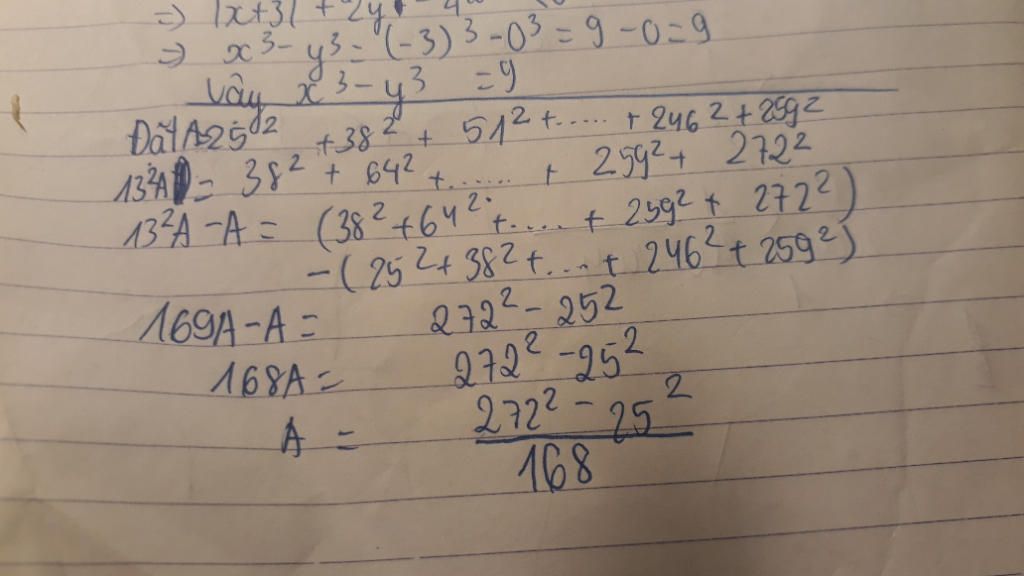 => |x+3| + 2y
=> x³ - y³ = (-3)³ - 0³ = 9 - 0 = 9
Vậy x³ - y³ = 9
Đặt A = 25² + 38² + 51² + ..... + 246² + 259²
13²A = 38² + 64² + ...... + 259² + 272²
13²A - A = (38² + 64² + .... + 259² + 272²)
- (25² + 38² + .... + 246² + 259²)
169A - A = 272² - 25²
168A = 272² - 25²
A = 272² - 25²
168